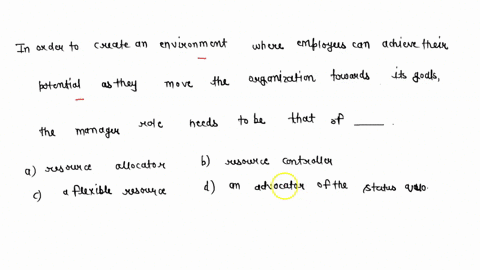 In order to create an environment where employees can achieve their
potential as they move the organization towards its goals,
the manager role needs to be that of ____.
a) resource allocator b) resource controller
c) a flexible resource d) an advocator of the status quo.